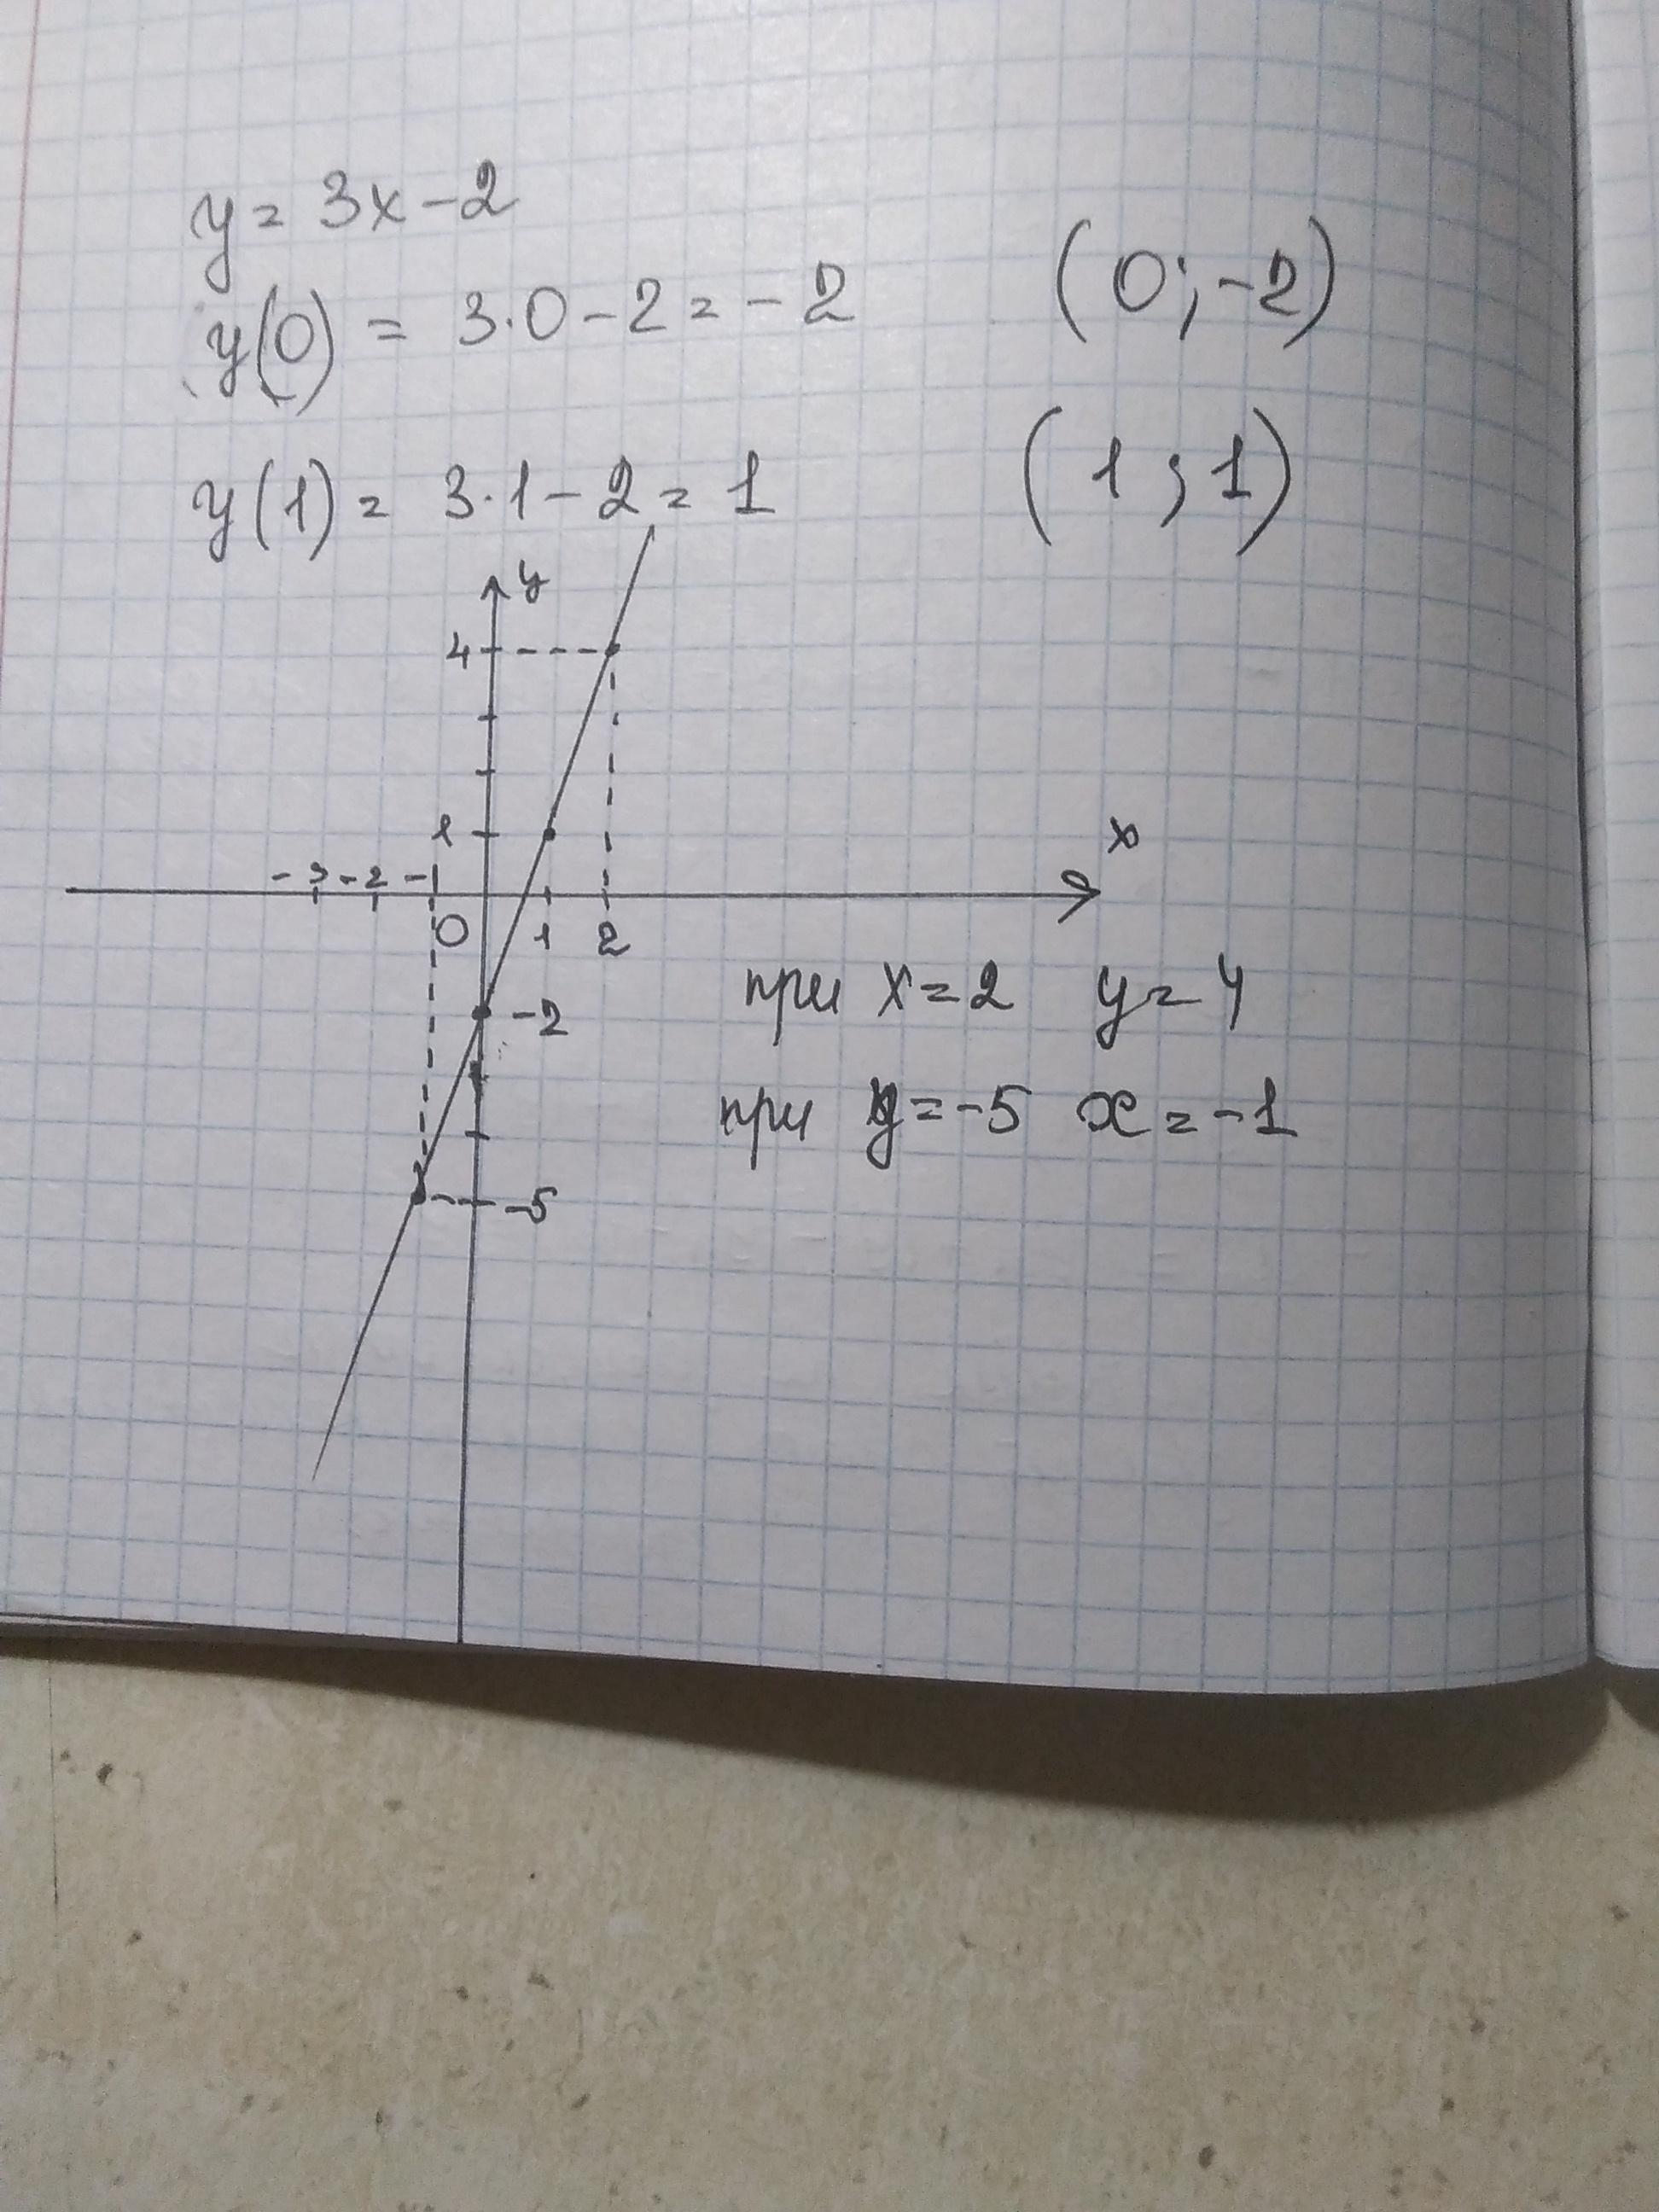 y = 3x - 2
y(0) = 3·0 - 2 = - 2 (0; -2)
y(1) = 3·1 - 2 = 1 (1; 1)
y
4
1
x
-3 -2 -1
0 1 2
при x = 2 y = 4
-2
при y = -5 x = -1
-5